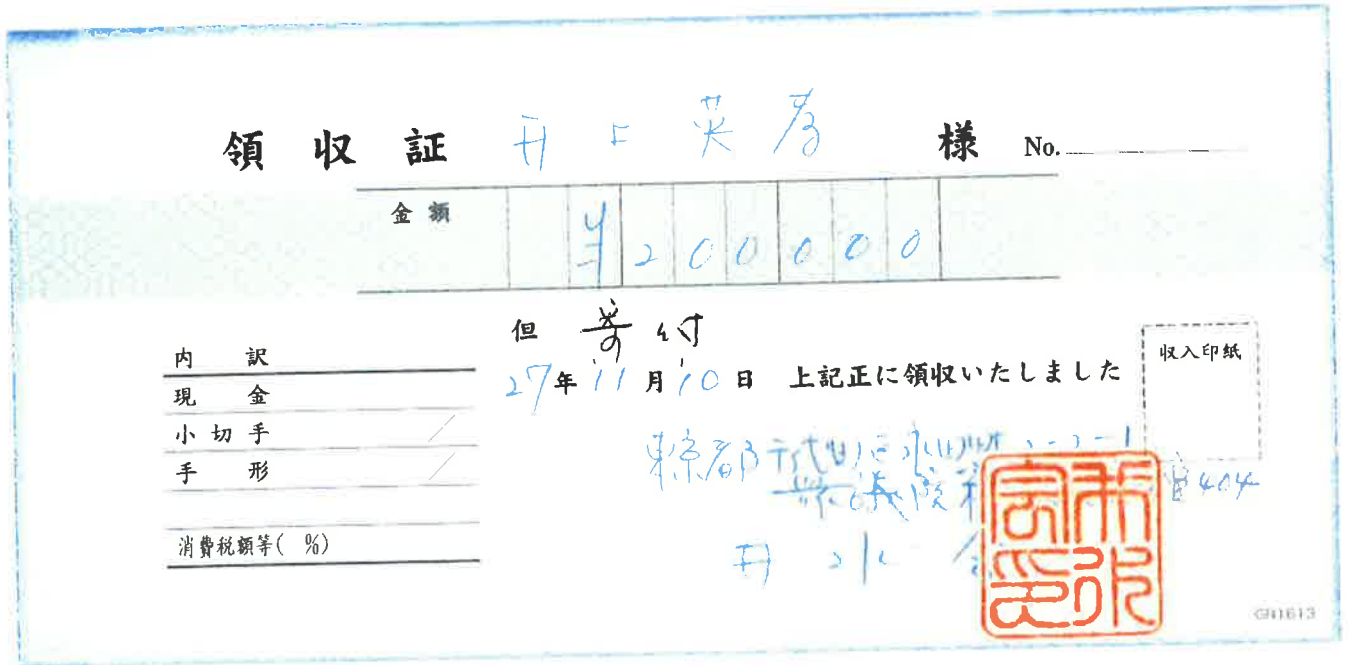 領収証 井上英孝 様 No.
金額 ¥200000
但 寄付
27年11月10日 上記正に領収いたしました
収入印紙
内訳
現金
小切手
手形
消費税額等( %)
東京都千代田区永田町 2-2-1
衆議院 404
井水会
GN1613